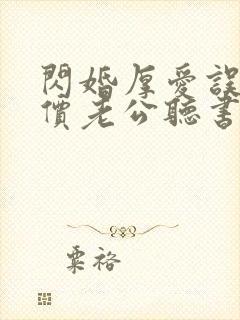 閃婚厚愛誤
價老公聽書
粟裕